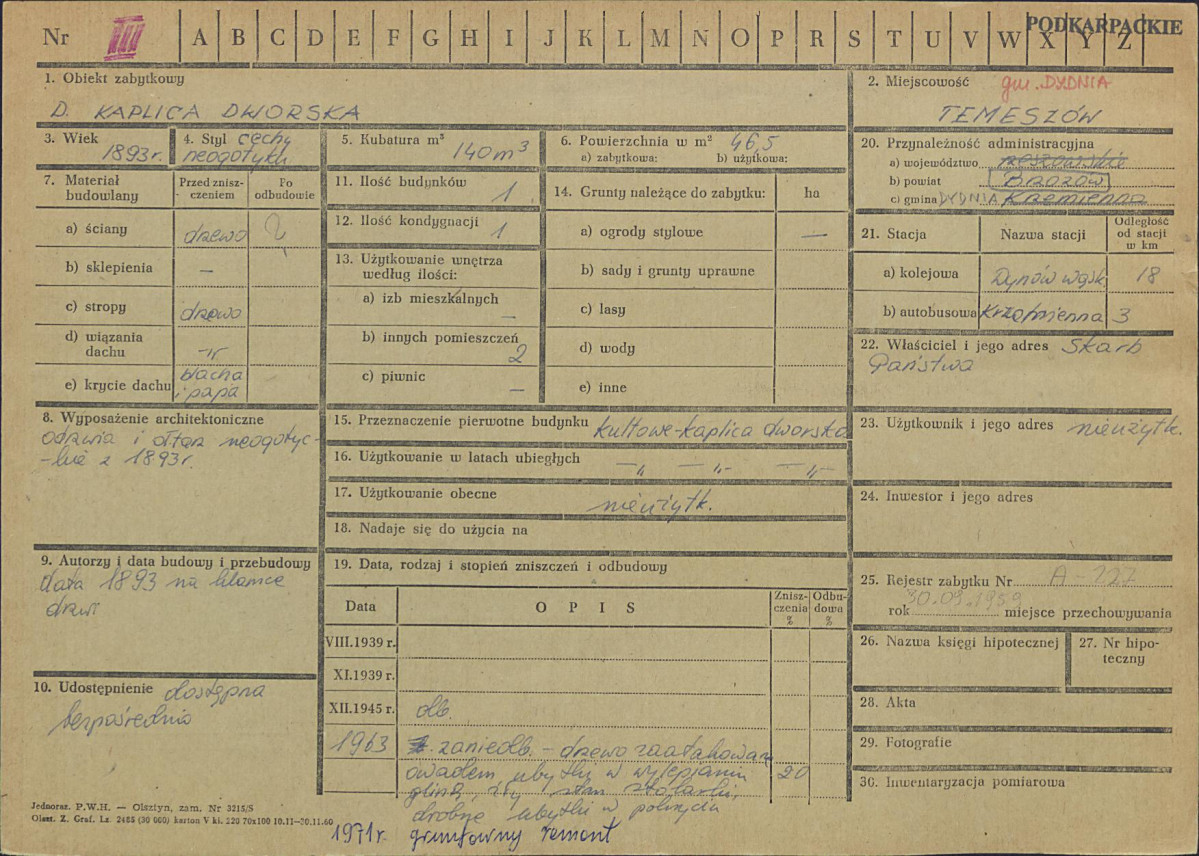 Nr III A B C D E F G H I J K L M N O P R S T U V W X Y Z
PODKARPACKIE
1. Obiekt zabytkowy
D. KAPLICA DWORSKA
2. Miejscowość gm. DYDNIA
TEMESZÓW
3. Wiek
1893 r.
4. Styl cechy
neogotyku
5. Kubatura m³
140 m³
6. Powierzchnia w m² 46,5
a) zabytkowa: b) użytkowa:
7. Materiał
budowlany
Przed znisz-
czeniem
Po
odbudowie
a) ściany drzewo
b) sklepienia —
c) stropy drzewo
d) wiązania
dachu —"—
e) krycie dachu blacha
i papa
8. Wyposażenie architektoniczne
odrzwia i ołtarz neogotyc-
-kie z 1893r.
9. Autorzy i data budowy i przebudowy
data 1893 na klamce
drzwi
10. Udostępnienie dostępna
bezpośrednio
11. Ilość budynków
1
12. Ilość kondygnacji
1
13. Użytkowanie wnętrza
według ilości:
a) izb mieszkalnych
—
b) innych pomieszczeń
2
c) piwnic
—
14. Grunty należące do zabytku: ha
a) ogrody stylowe —
b) sady i grunty uprawne
c) lasy
d) wody
e) inne
15. Przeznaczenie pierwotne budynku kultowe-kaplica dworska
16. Użytkowanie w latach ubiegłych —„— —„— —„—
17. Użytkowanie obecne
nieużytk.
18. Nadaje się do użycia na
19. Data, rodzaj i stopień zniszczeń i odbudowy
Data OPIS
Znisz-
czenia
%
Odbu-
dowa
%
VIII.1939 r.
XI.1939 r.
XII.1945 r. db.
1963 zaniedb. - drzewo zaatakowane
owadem ubytki w wylepianiu
gliną, zły stan stolarki, 20
drobne ubytki w pokryciu
1971r. gruntowny remont
20. Przynależność administracyjna
a) województwo rzeszowskie
b) powiat Brzozów
c) gmina DYDNIA Krzemienna
21. Stacja
Nazwa stacji
Odległość
od stacji
w km
a) kolejowa Dynów wąsk. 18
b) autobusowa Krzemienna 3
22. Właściciel i jego adres Skarb
Państwa
23. Użytkownik i jego adres nieużytk.
24. Inwestor i jego adres
25. Rejestr zabytku Nr A-
30.09.1959
rok miejsce przechowywania
26. Nazwa księgi hipotecznej
27. Nr hipo-
teczny
28. Akta
29. Fotografie
30. Inwentaryzacja pomiarowa
Jednoraz. P.W.H. — Olsztyn, zam. Nr 3215/S
Olszt. Z. Graf. Lz. 2485 (30 000) karton V kl. 220 70x100 10.11—30.11.60